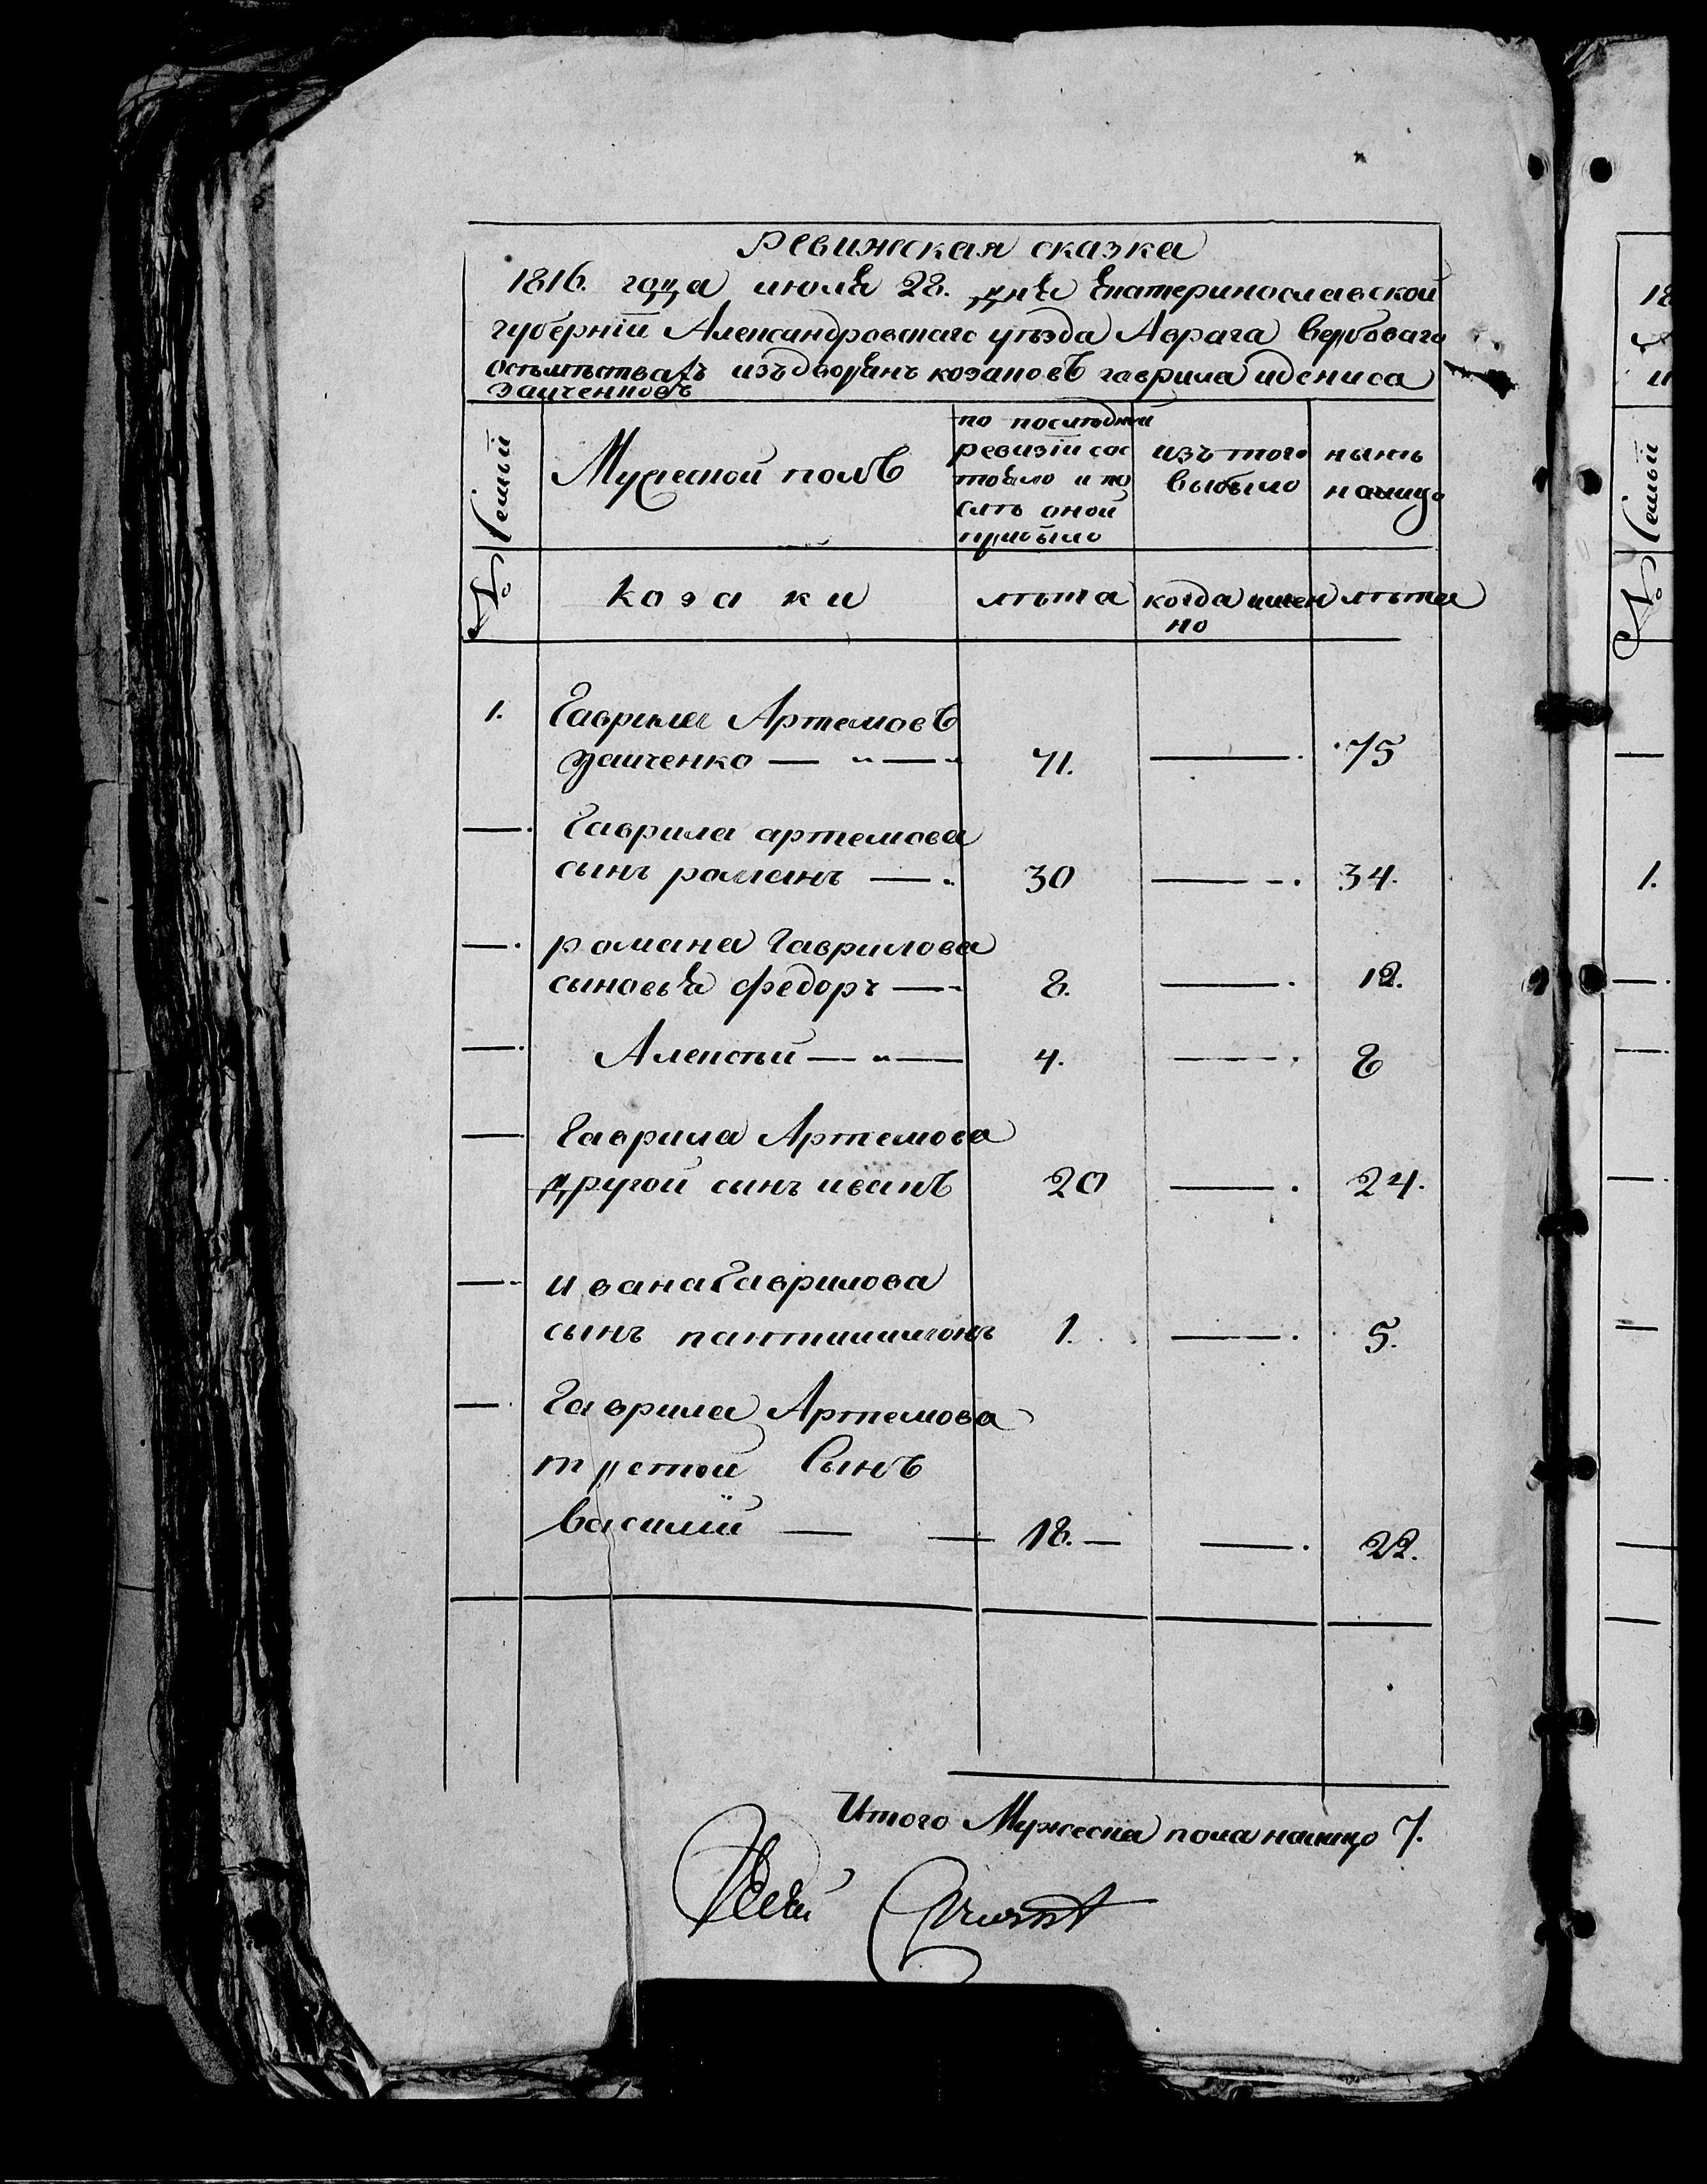 Ревижская сказка
1816. года июля 28. дня Екатеринославской
губерніи Александровскаго уѣзда Аврага Вербоваго
изъ дворянъ козаковъ гаврила и дениса
Заиченковъ
№ Семьи
Мужеской полъ
по последней
ревизіи сос
тояло и по
слѣ оной
прибыло
изъ того
выбыло
нынѣ
налицо
козаки
лѣта
когда имен
но
лѣта
1. Гаврила Артемовъ
Заиченко — „ — „ 71. — 75
— Гаврила артемова
сынъ романъ — „ 30 — 34.
— романа Гаврилова
сыновья федоръ — 8. — 12.
— Алексѣй — „ — 4. — 8
— Гаврила Артемова
другой сынъ иванъ 20 — 24.
— ивана Гаврилова
сынъ пантилимонъ 1. — 5.
— Гаврила Артемова
третой Сынъ
василій — — 18. — — 22.
Итого Мужеска пола налицо 7.
18
1.
№ Семьи